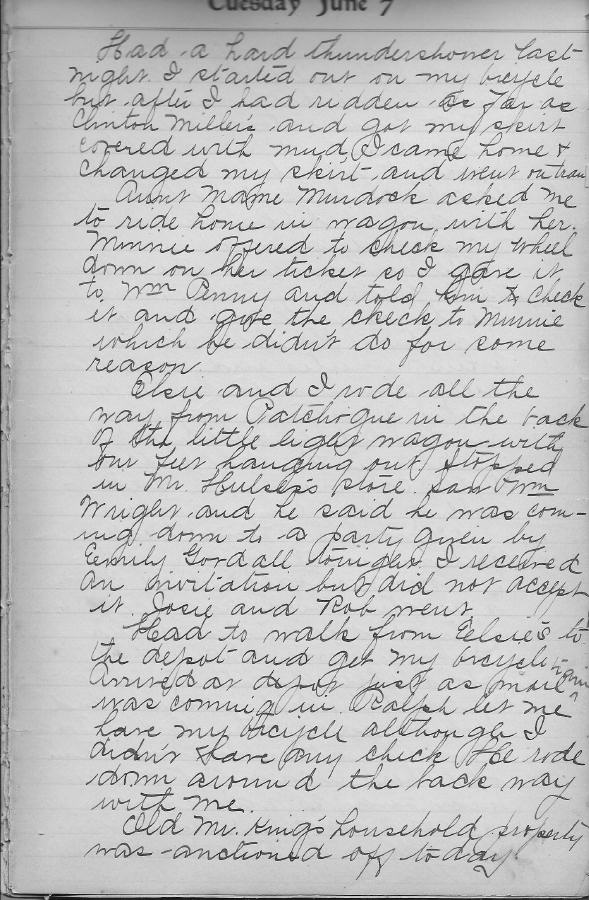 Tuesday June 7
Had a hard thundershower last
night. I started out on my bicycle
but after I had ridden as far as
Clinton Miller's and got my skirt
covered with mud I came home &
changed my skirt and went on train
Aunt Mame Murdock asked me
to ride home in wagon with her.
Minnie offered to check my wheel
down on her ticket so I gave it
to Wm Penny and told him to check
it and give the check to Minnie
which he didn't do for some
reason.
Elsie and I rode all the
way from Patchogue in the back
of the little light wagon with
our feet hanging out. Stopped
in Mr. Hulse's store. Saw Wm
Wright and he said he was com-
ing down to a party given by
Emily Gordall tonight. I received
an invitation but did not accept
it. Josie and Rob went.
Had to walk from Elsie's to
the depot and get my bicycle
arrived at depot just as mail train
was coming in. Ralph let me
have my bicycle although I
didn't have any check. He rode
down around the back way
with me.
Old Mr. King's household property
was auctioned off today.